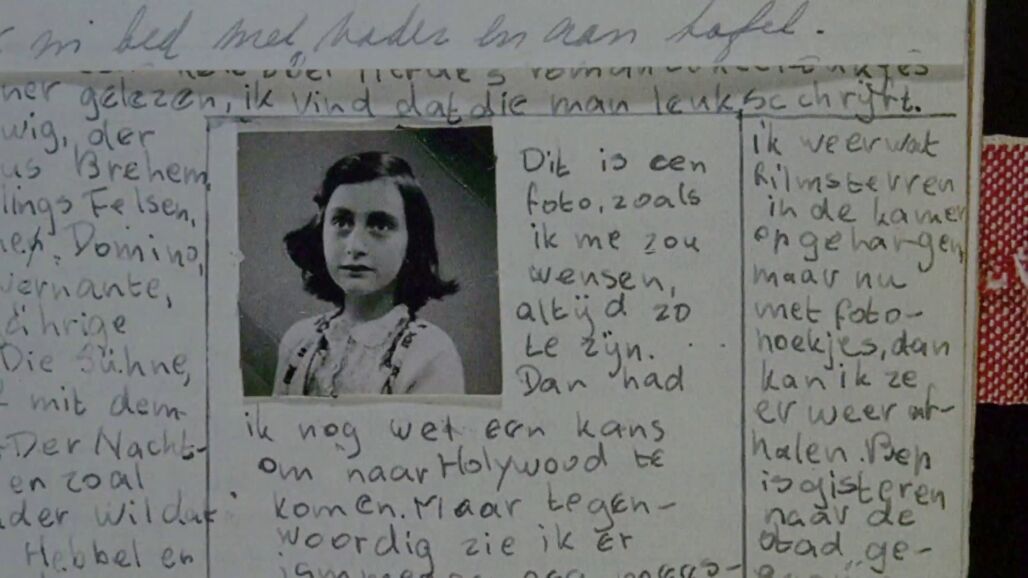 in bed met vader en aan tafel.
ner gelezen, ik vind dat die man leuk schrijft.
wig, der
us Brehem
lings Felsen,
Domino,
vernante,
jährige
Die Sühne,
mit dem
Der Nacht-
en zoal
der wil dat
Hebbel en
Dit is een
foto, zoals
ik me zou
wensen,
altijd zo
te zijn.
Dan had
ik nog wel een kans
om naar Holywood te
komen. Maar tegen-
woordig zie ik er
ik weer wat
filmsterren
in de kamer
opgehangen
maar nu
met foto-
hoekjes, dan
kan ik ze
er weer af-
halen. Bep
is gisteren
naar de
stad ge-